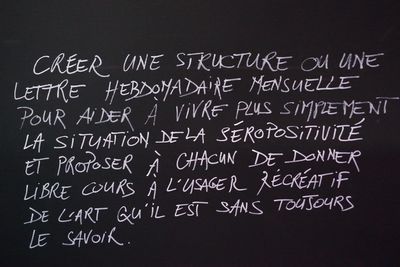 CRÉER UNE STRUCTURE OU UNE
LETTRE HEBDOMADAIRE MENSUELLE
POUR AIDER À VIVRE PLUS SIMPLEMENT
LA SITUATION DE LA SÉROPOSITIVITÉ
ET PROPOSER À CHACUN DE DONNER
LIBRE COURS À L'USAGER RÉCRÉATIF
DE L'ART QU'IL EST SANS TOUJOURS
LE SAVOIR.